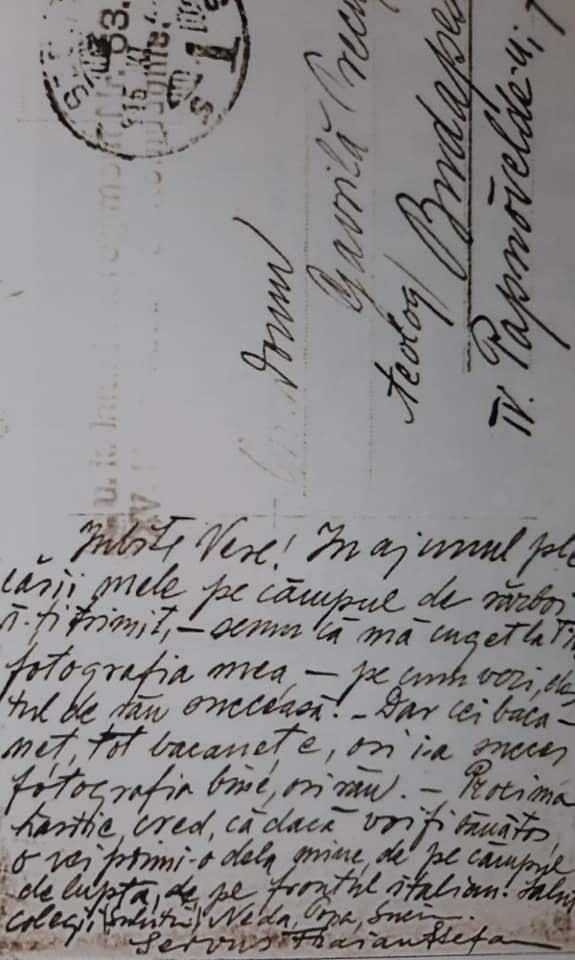 Domn
Gavrilă
teolog
Budapes
IV. Papnövelde-u, 7
Iubite Vere! In ajunul ple
cării mele pe câmpul de război
ă-ți trimit, – semn că mă cuget la Tin
fotografia mea – pe cum vezi, des
tul de rău succeasă. – Dar cei baca-
neț, tot bacaneț e, ori i-a succes
fotografia bine, ori rău. – Proxima
hârtie, cred, că dacă voi fi sănătos,
o vei primi-o dela mine, de pe câmpul
de luptă, de pe frontul italian. Salut
colegii Neda, Popa,
Servus Traian